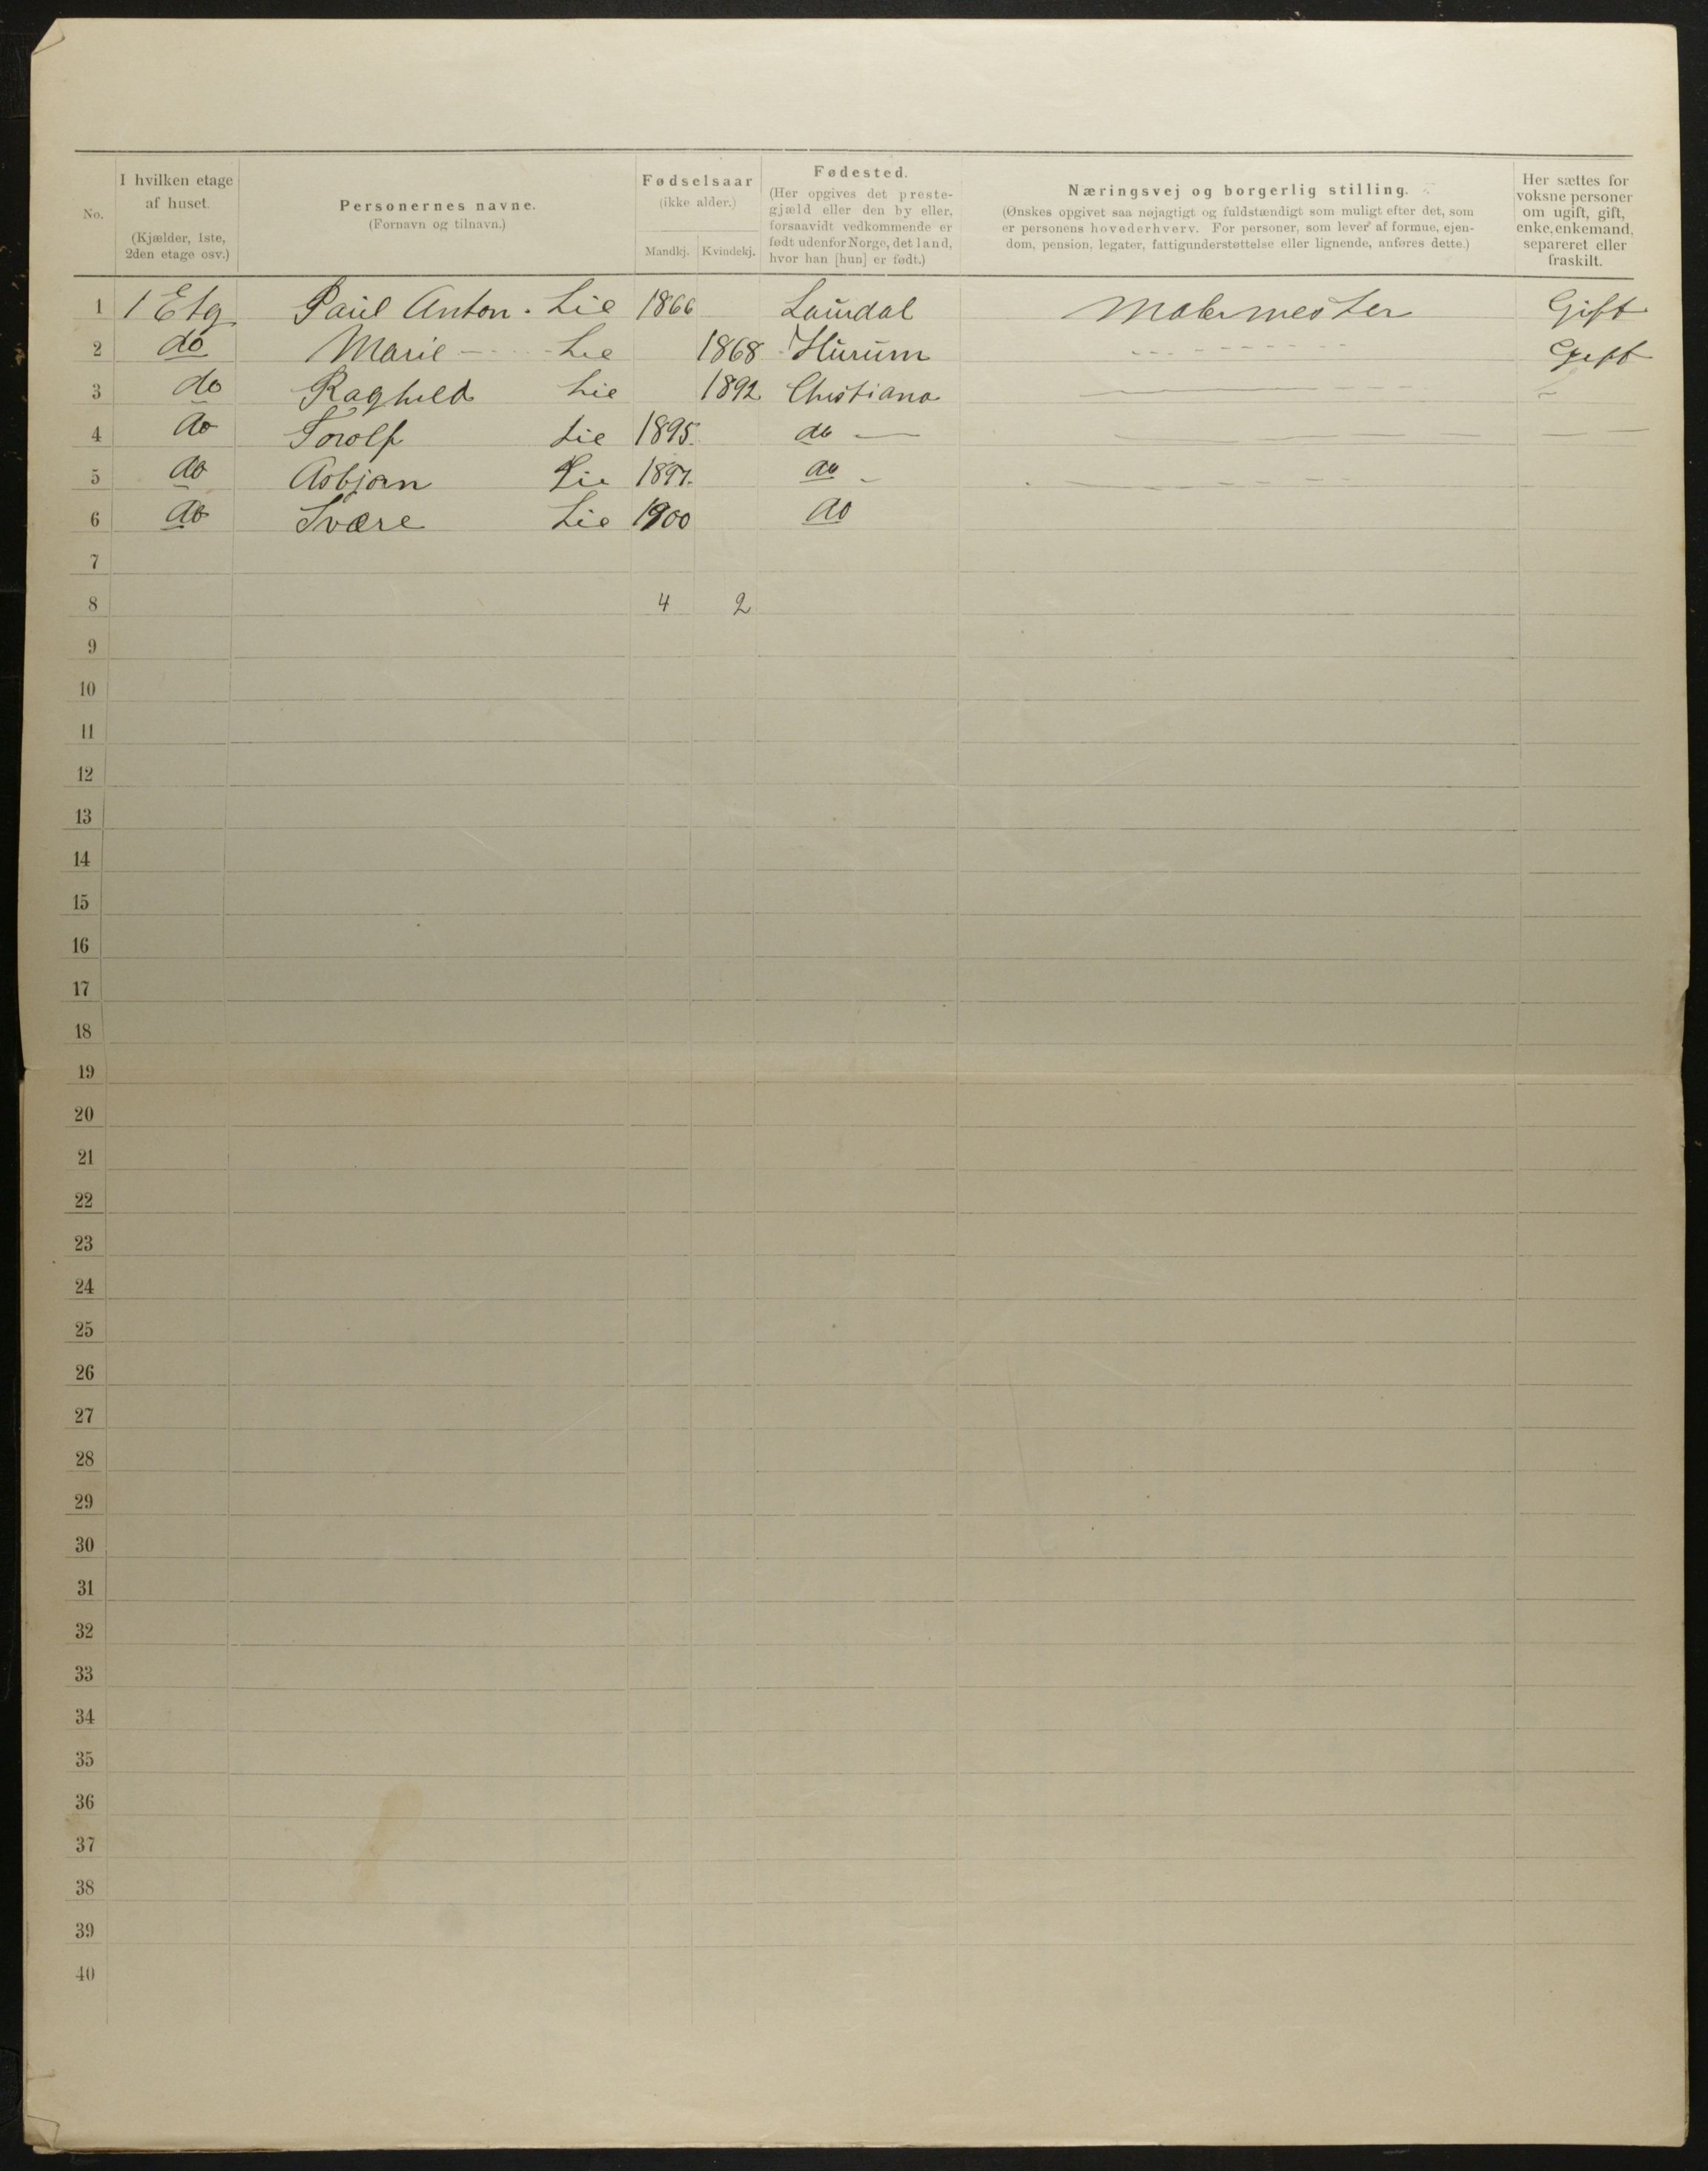 No.
I hvilken etage af huset.
(Kjælder, 1ste, 2den etage osv.)
Personernes navne.
(Fornavn og tilnavn.)
Fødselsaar
(ikke alder.)
Mandkj. Kvindekj.
Fødested.
(Her opgives det prestegjæld eller den by eller, forsaavidt vedkommende er født udenfor Norge, det land, hvor han [hun] er født.)
Næringsvej og borgerlig stilling.
(Ønskes opgivet saa nøjagtigt og fuldstændigt som muligt efter det, som er personens hovederhverv. For personer, som lever af formue, ejendom, pension, legater, fattigunderstøttelse eller lignende, anføres dette.)
Her sættes for voksne personer om ugift, gift, enke, enkemand, separeret eller fraskilt.
1 1 Etg Paul Anton. Lie 1866 Laurdal Malermester Gift
2 do Marie Lie 1868 Hurum Gift
3 do Raghild Lie 1892 Chistiana
4 do Torolf Lie 1895. do
5 do Asbjørn Lie 1897. do
6 do Svære Lie 1900 do
7
8 4 2
9
10
11
12
13
14
15
16
17
18
19
20
21
22
23
24
25
26
27
28
29
30
31
32
33
34
35
36
37
38
39
40